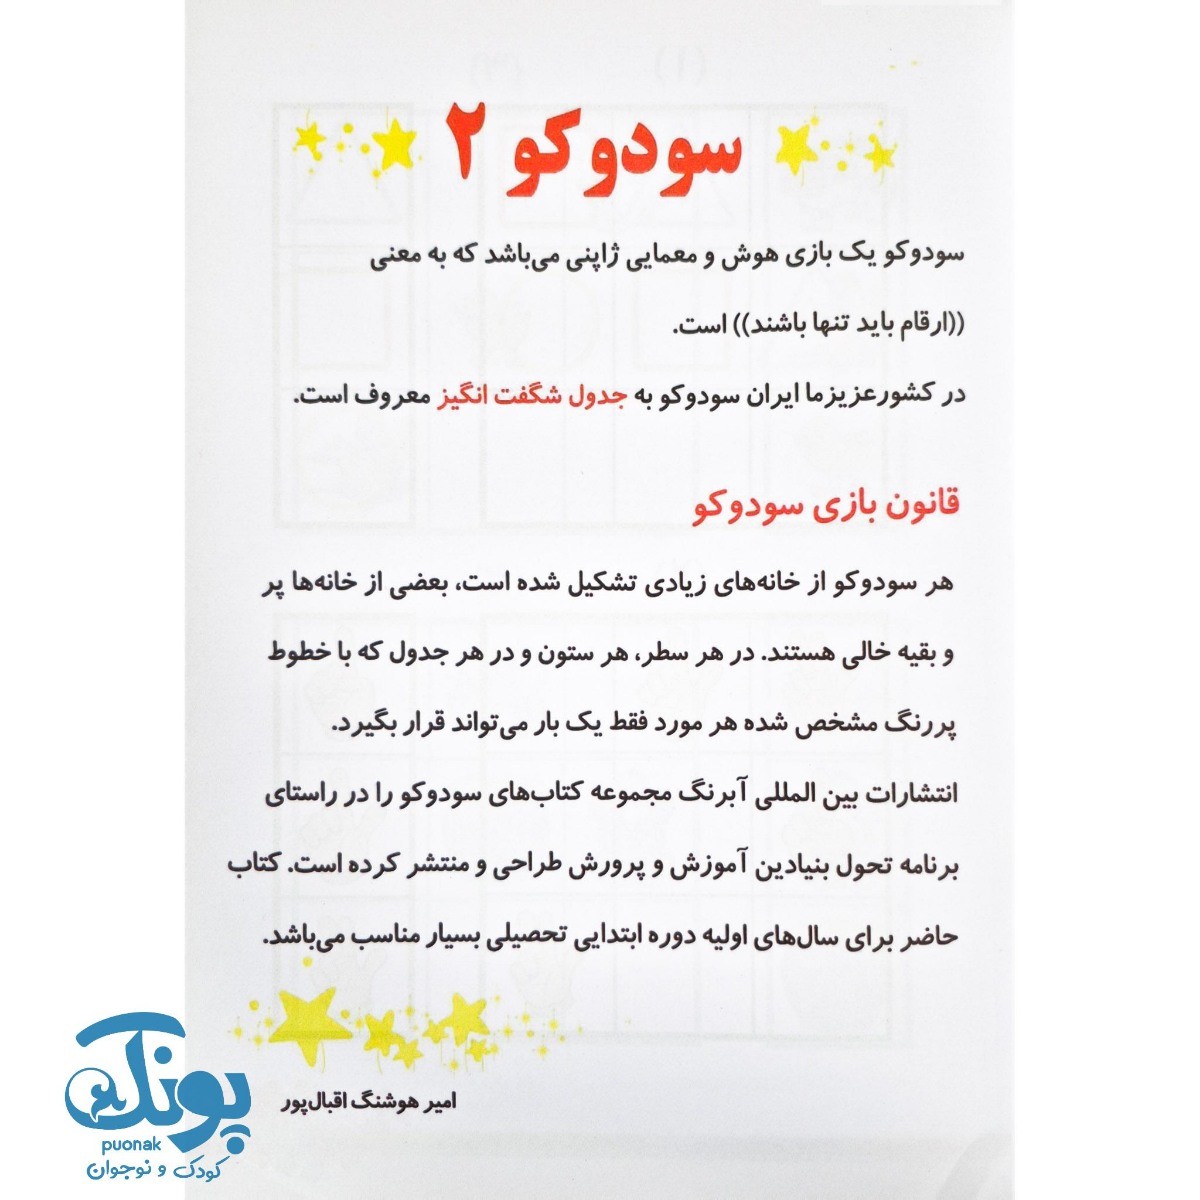 سودوکو ۲
سودوکو یک بازی هوش و معمایی ژاپنی می‌باشد که به معنی
((ارقام باید تنها باشند)) است.
در کشورعزیزما ایران سودوکو به جدول شگفت انگیز معروف است.
قانون بازی سودوکو
هر سودوکو از خانه‌های زیادی تشکیل شده است، بعضی از خانه‌ها پر
و بقیه خالی هستند. در هر سطر، هر ستون و در هر جدول که با خطوط
پررنگ مشخص شده هر مورد فقط یک بار می‌تواند قرار بگیرد.
انتشارات بین المللی آبرنگ مجموعه کتاب‌های سودوکو را در راستای
برنامه تحول بنیادین آموزش و پرورش طراحی و منتشر کرده است. کتاب
حاضر برای سال‌های اولیه دوره ابتدایی تحصیلی بسیار مناسب می‌باشد.
امیر هوشنگ اقبال‌پور
پونک
puonak
کودک و نوجوان